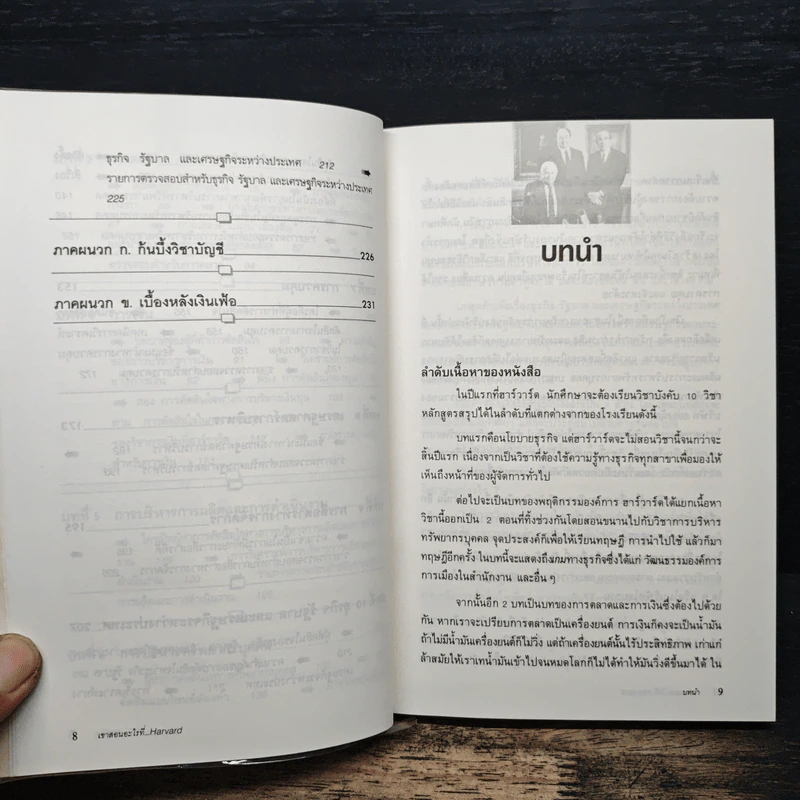 ธุรกิจ รัฐบาล และเศรษฐกิจระหว่างประเทศ 212
รายการตรวจสอบสำหรับธุรกิจ รัฐบาล และเศรษฐกิจระหว่างประเทศ
225
ภาคผนวก ก. ก้นบึ้งวิชาบัญชี 226
ภาคผนวก ข. เบื้องหลังเงินเฟ้อ 231
8 เขาสอนอะไรที่...Harvard
บทนำ
ลำดับเนื้อหาของหนังสือ
ในปีแรกที่ฮาร์วาร์ด นักศึกษาจะต้องเรียนวิชาบังคับ 10 วิชา
หลักสูตรสรุปได้ในลำดับที่แตกต่างจากของโรงเรียนดังนี้
บทแรกคือนโยบายธุรกิจ แต่ฮาร์วาร์ดจะไม่สอนวิชานี้จนกว่าจะ
สิ้นปีแรก เนื่องจากเป็นวิชาที่ต้องใช้ความรู้ทางธุรกิจทุกสาขาเพื่อมองให้
เห็นถึงหน้าที่ของผู้จัดการทั่วไป
ต่อไปจะเป็นบทของพฤติกรรมองค์การ ฮาร์วาร์ดได้แยกเนื้อหา
วิชานี้ออกเป็น 2 ตอนที่ทิ้งช่วงกันโดยสอนขนานไปกับวิชาการบริหาร
ทรัพยากรบุคคล จุดประสงค์ก็เพื่อให้เรียนทฤษฎี การนำไปใช้ แล้วก็มา
ทฤษฎีอีกครั้ง ในบทนี้จะแสดงถึงเกมทางธุรกิจซึ่งได้แก่ วัฒนธรรมองค์การ
การเมืองในสำนักงาน และอื่น ๆ
จากนั้นอีก 2 บทเป็นบทของการตลาดและการเงินซึ่งต้องไปด้วย
กัน หากเราจะเปรียบการตลาดเป็นเครื่องยนต์ การเงินก็คงจะเป็นน้ำมัน
ถ้าไม่มีน้ำมันเครื่องยนต์ก็ไม่วิ่ง แต่ถ้าเครื่องยนต์นั้นไร้ประสิทธิภาพ เก่าแก่
ล้าสมัยให้เราเทน้ำมันเข้าไปจนหมดโลกก็ไม่ได้ทำให้มันวิ่งดีขึ้นมาได้ ใน
บทนำ 9